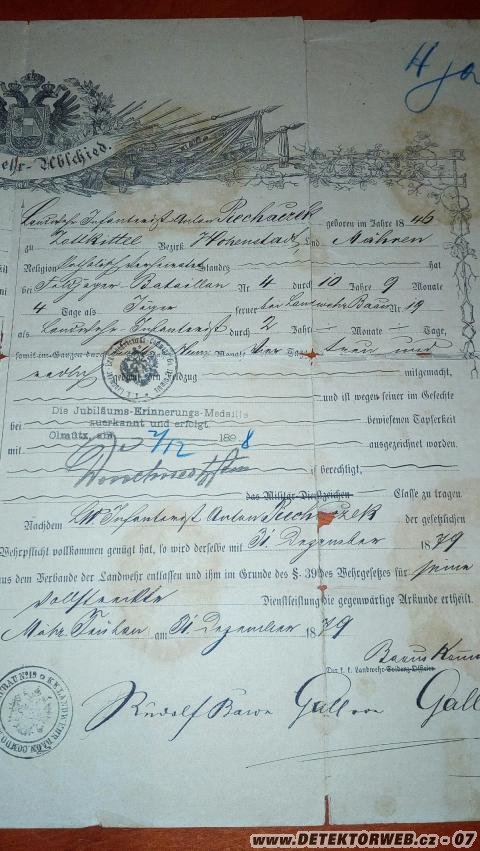 ehr-Abschied.
Landwehr Infanterist Anton Piechaczek geboren im Jahre 1846
zu Zottkittel Bezirk Hohenstadt Land Mähren
Religion katholisch verheiratet Standes hat
bei Feldjäger Bataillon Nr. 4 durch 10 Jahre 9 Monate
4 Tage als Jäger ferner bei Landwehr Baon Nr. 19
als Landwehr Infanterist durch 2 Jahr — Monate — Tage,
somit im Ganzen durch neun Monate vier Tage treu und
redlich gedient den Feldzug mitgemacht,
und ist wegen seiner im Gefechte
Die Jubiläums-Erinnerungs-Medaille
zuerkannt und erfolgt.
bei bewiesenen Tapferkeit
Olmütz, am 7/12 1898
mit ausgezeichnet worden.
ist berechtigt,
das Militär-Dienstzeichen Classe zu tragen.
Nachdem LW Infanterist Anton Piechaczek der gesetzlichen
Wehrpflicht vollkommen genügt hat, so wird derselbe mit 31 Dezember 1879
aus dem Verbande der Landwehr entlassen und ihm im Grunde des §. 39 des Wehrgesetzes für seine
vollstreckte Dienstleistung die gegenwärtige Urkunde ertheilt.
Mähr. Trübau am 31 Dezember 1879
Der k. k. Landwehr-
Rudolf Baron Gall von Gall
www.DETEKTORWEB.cz - 07